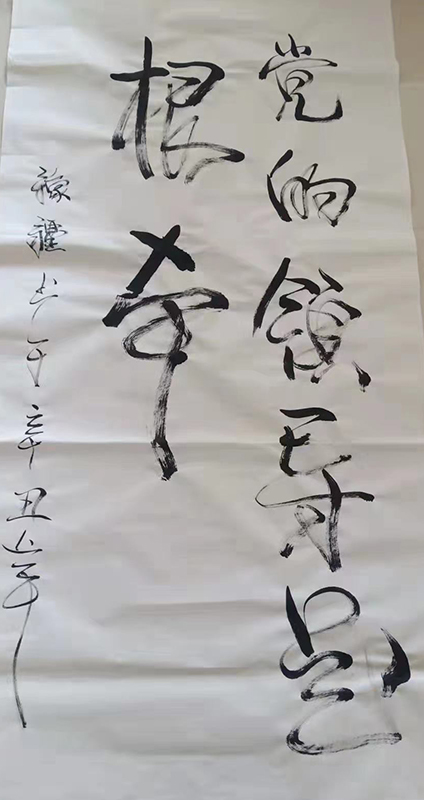 党的领导是
根本
书于辛丑年